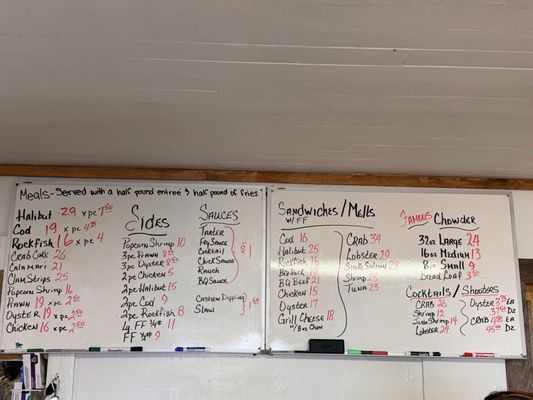 Meals - Served with a half pound entree & half pound of fries.
Halibut 29 x pc 7⁵⁰
Cod 19 x pc 4⁵⁰
Rockfish 16 x pc 4
Crab Cake 26
Calamari 21
Clam Strips 25
Popcorn Shrimp 16
Prawn 19 x pc 2⁵⁰
Oyster 19 x pc 2⁵⁰
Chicken 16 x pc 2⁵⁰
Sides
Popcorn Shrimp 10
3pc Prawn 8⁵⁰
3pc Oyster 8⁵⁰
2pc Chicken 5
2pc Halibut 15
2pc Cod 9
2pc Rockfish 8
Lg FF 3/4# 11
FF 1/2# 9
Sauces
Tarter
Fry Sauce
Cocktail
Chick Sauce
Ranch
BQ Sauce
1
Cashew Dipping
Slaw
1⁵⁰
Sandwiches/Melts
w/FF
Cod 16
Halibut 25
Rockfish 15
BQ Pork 18
BQ Beef 21
Chicken 15
Oyster 17
Grill Cheese 18
w/8oz Chow
Crab 34
Lobster 29
Smk Salmon 28
Shrimp 23
Tuna 23
Famous Chowder
32oz Large 24
16oz Medium 13
8oz Small 9
Bread Loaf 3⁵⁰
Cocktails/Shooters
Crab 26
Shrimp 12
Lobster 24
Oyster EA
DZ
Crab 4⁵⁰ EA
45⁰⁰ DZ